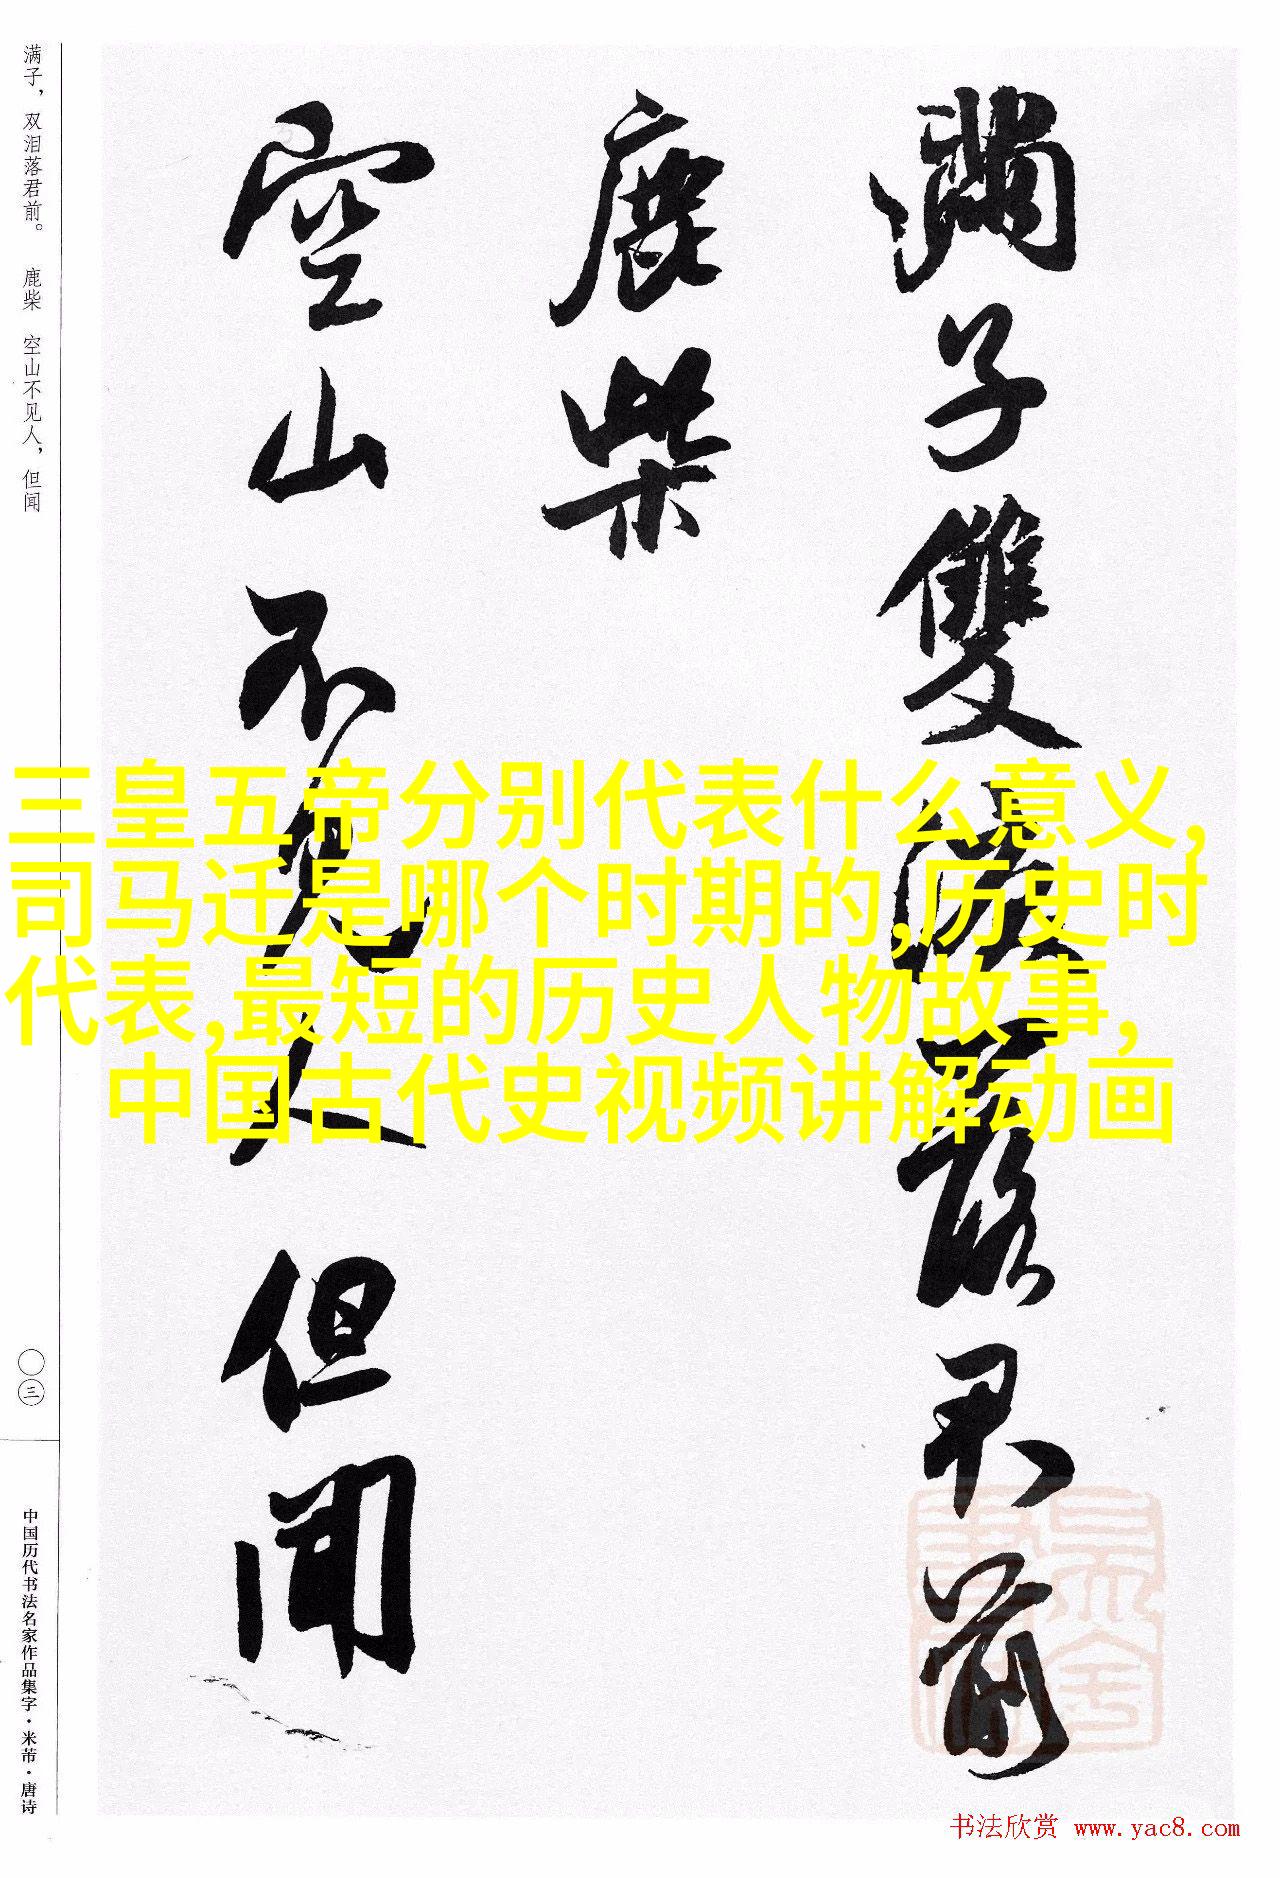 满子，双泪落君前。 鹿柴 空山不见人，但闻
〇三
中国历代书法名家作品集字·米芾·唐诗
满子雙淚落君前
鹿柴
空山不見人但聞
三皇五帝分别代表什么意义,
司马迁是哪个时期的,历史时
代表,最短的历史人物故事,
中国古代史视频讲解动画
书法欣赏 www.yac8.com